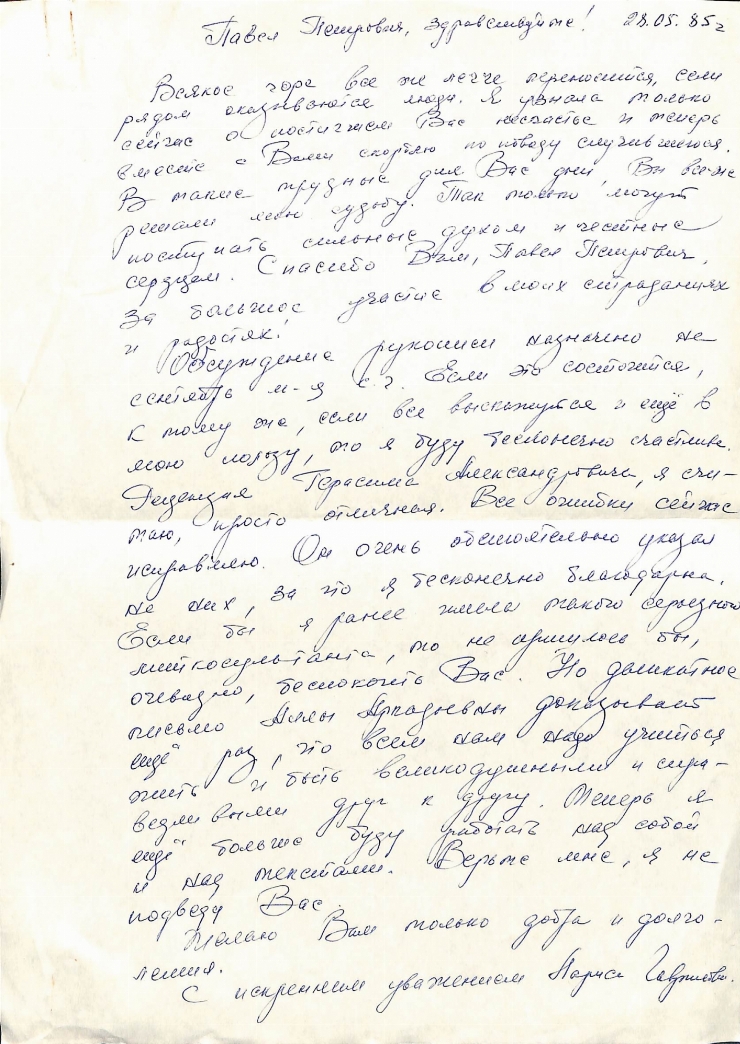 Павел Петрович, здравствуйте! 28.05.85г
Всякое горе все же легче переносится, если
рядом оказываются люди. Я узнала только
сейчас о постигшем Вас несчастье и теперь
вместе с Вами скорблю по поводу случившегося.
В такие трудные для Вас дни, Вы все-же
решали мою судьбу. Так только могут
поступать сильные духом и честные
сердцем. Спасибо Вам, Павел Петрович,
за большое участие в моих страданиях
и радостях!
Обсуждение рукописи назначено на
сентябрь м-я с.г. Если это состоится,
к тому же, если все выскажутся и ещё в
мою пользу, то я буду бесконечно счастлива.
Рецензия Герасима Александровича, я счи-
таю, просто отличная. Все ошибки сейчас
исправляю. Он очень обстоятельно указал
на них, за что я бесконечно благодарна.
Если бы я ранее имела такого серьезного
литкосультанта, то не пришлось бы,
очевидно, беспокоить Вас. Но деликатное
письмо Аллы Аркадьевны доказывает
ещё раз, что всем нам надо учиться
жить и быть великодушными и спра-
ведливыми друг к другу. Теперь я
ещё больше буду работать над собой
и над текстами. Верьте мне, я не
подведу Вас.
Желаю Вам только добра и долго-
летия.
С искренним уважением Лариса